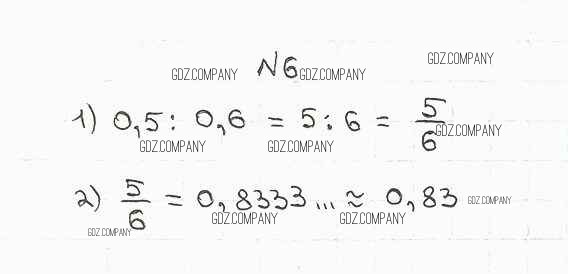 GDZ.COMPANY
GDZ.COMPANY №6 GDZ.COMPANY
1) 0,5 : 0,6 = 5 : 6 = 5/6 GDZ.COMPANY
GDZ.COMPANY GDZ.COMPANY
2) 5/6 = 0,8333... ≈ 0,83 GDZ.COMPANY
GDZ.COMPANY GDZ.COMPANY
GDZ.COMPANY